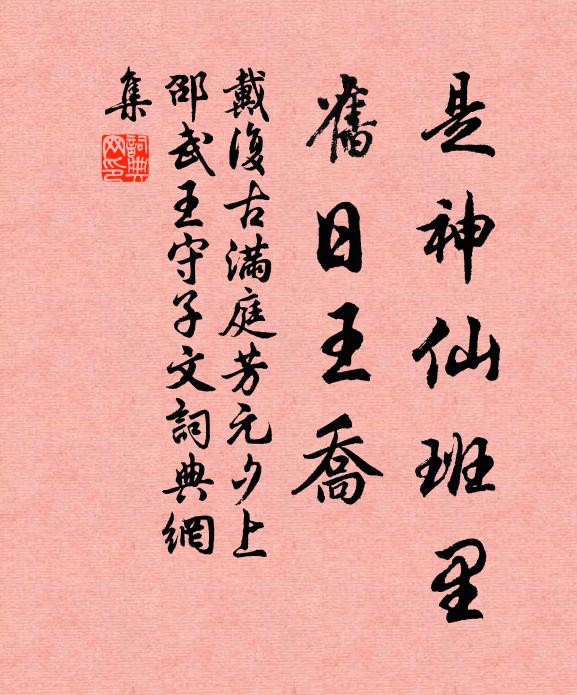 是神仙班里
舊日王喬
戴復古滿庭芳元夕上
邵武王守子文詞典網
集
詞典
网印